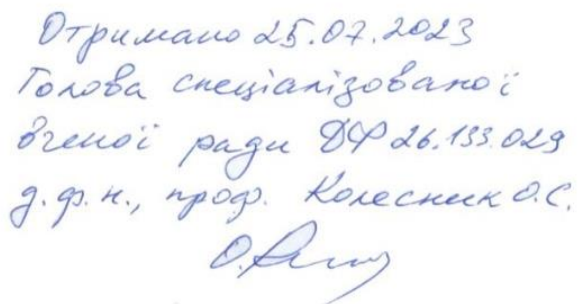 Отримано 25.07.2023
Голова спеціалізованої
вченої ради ДФ 26.133.029
д.ф.н., проф. Колесник О.С.